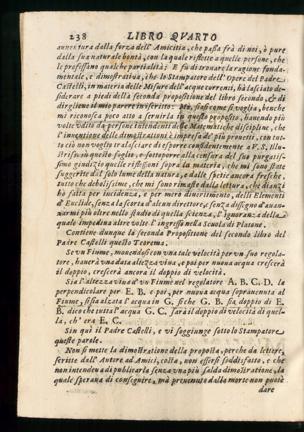 238 LIBRO QVARTO
annestura dalla forza dell' Amicitia, che passa frà di noi, ò pure
dalla sua naturale bontà, con la quale riflette a quelle persone, che
le professano qualche partialità; E fù di trouar la ragione fonda-
mentale, e dimostratiua, che lo Stampatore dell' Opere del Padre
Castelli, in materia delle Misure dell' acque correnti, hà lasciato de-
siderare a piedi della seconda propositione del libro secondo, & di
dirgliene il mio parere in iscritto: mà, sia come si voglia, benche
mi riconosca poco atto a seruirla in questo proposito, hauendo più
volte vdito da persone intendenti delle Matematiche discipline, che
l' inuentione delle dimostrationi è impresa de' più prouetti, con tut-
to ciò non voglio tralasciare di esporre confidentemente a V. S. Illu-
strissima in questo foglio, e sottoporre alla censura del suo purgatis-
simo giuditio quelle riflessioni sopra la materia, che mi sono state
suggerite dal solo lume della natura, e dalle spetie ancora fresche,
tutto che debolissime, che mi sono rimaste dalla lettura, che dianzi
hò fatta per incidenza, e per mero diuertimento, delli Elementi
d' Euclide, senza la scorta d' alcun direttore, e senza disegno d' auan-
zarmi più oltre nello studio di quella scienza, l' ignoranza della
quale impediua altre volte l' ingresso nella Scuola di Platone.
Contiene dunque la seconda Propositione del secondo libro del
Padre Castelli questo Teorema.
Se vn Fiume, mouendosi con vna tale velocità per vn suo regola-
tore, hauerà vna data altezza viua, e poi per nuoua acqua crescerà
il doppio, crescerà ancora il doppio di velocità.
Sia l' altezza viua d' vn Fiume nel regolatore A. B. C. D. la
perpendicolare per E. B. e poi, per nuoua acqua soprauenuta al
Fiume, sissia alzata l' acqua in G. siche G. B. sia doppio di E.
B. dico che tutta l' acqua G. C. sarà il doppio di velocità di quel-
la, ch' era E. C.
Sin quì il Padre Castelli, e vi soggiunge sotto lo Stampatore
queste parole.
Non si mette la dimostratione della proposta, perche da lettere,
scritte dall' Autore ad Amici, costa, non essersi soddisfatto, e che
non intendeua di publicarla senza vna più salda dimostratione, la
quale speraua di conseguire, mà preuenuto dalla morte non puotè
dare